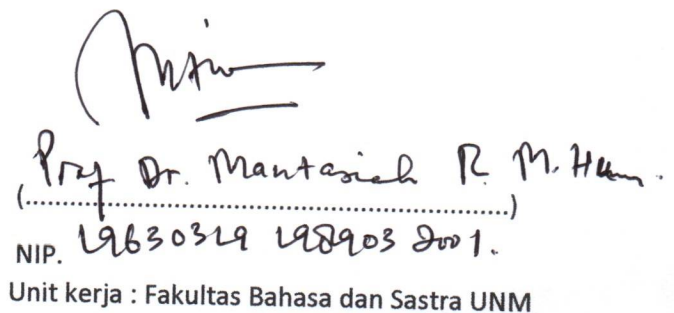 Prof Dr. Mantasiah R. M. Hum.
(..............................................................)
NIP. 19630329 198903 2001.
Unit kerja : Fakultas Bahasa dan Sastra UNM